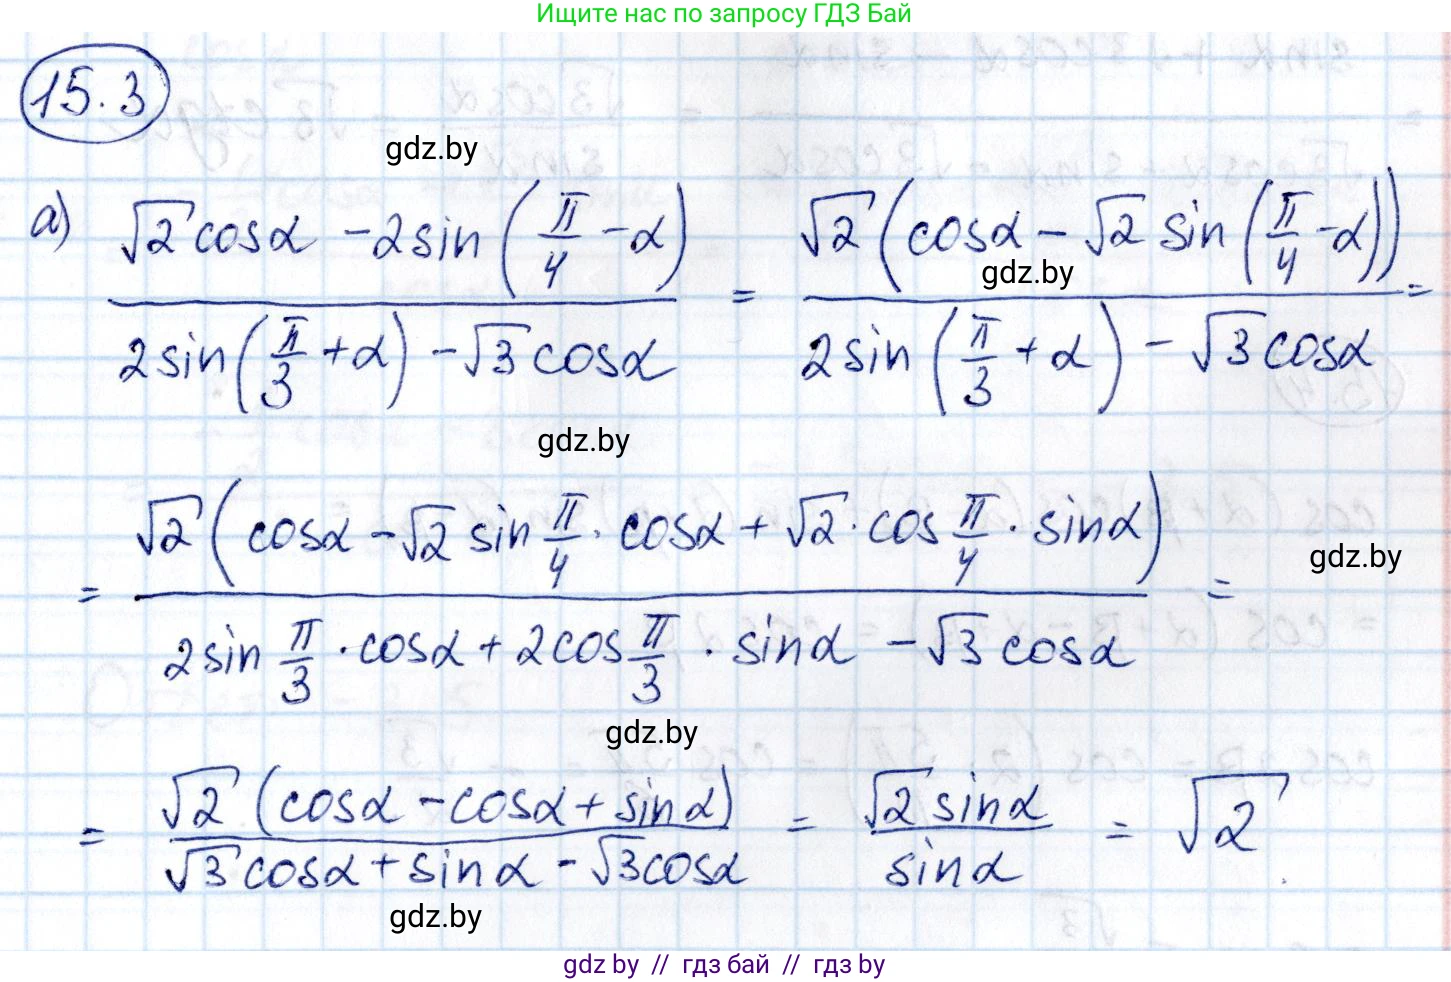 Ищите нас по запросу ГДЗ Бай
15.3
gdz.by
а) (√2 cosα - 2sin(π/4 - α)) / (2sin(π/3 + α) - √3 cosα) = (√2 (cosα - √2 sin(π/4 - α))) / (2sin(π/3 + α) - √3 cosα) =
gdz.by
gdz.by
= (√2 (cosα - √2 sin π/4 · cosα + √2 · cos π/4 · sinα)) / (2sin π/3 · cosα + 2cos π/3 · sinα - √3 cosα) =
gdz.by
gdz.by
= (√2 (cosα - cosα + sinα)) / (√3 cosα + sinα - √3 cosα) = (√2 sinα) / (sinα) = √2
gdz.by
gdz by // гдз бай // гдз by